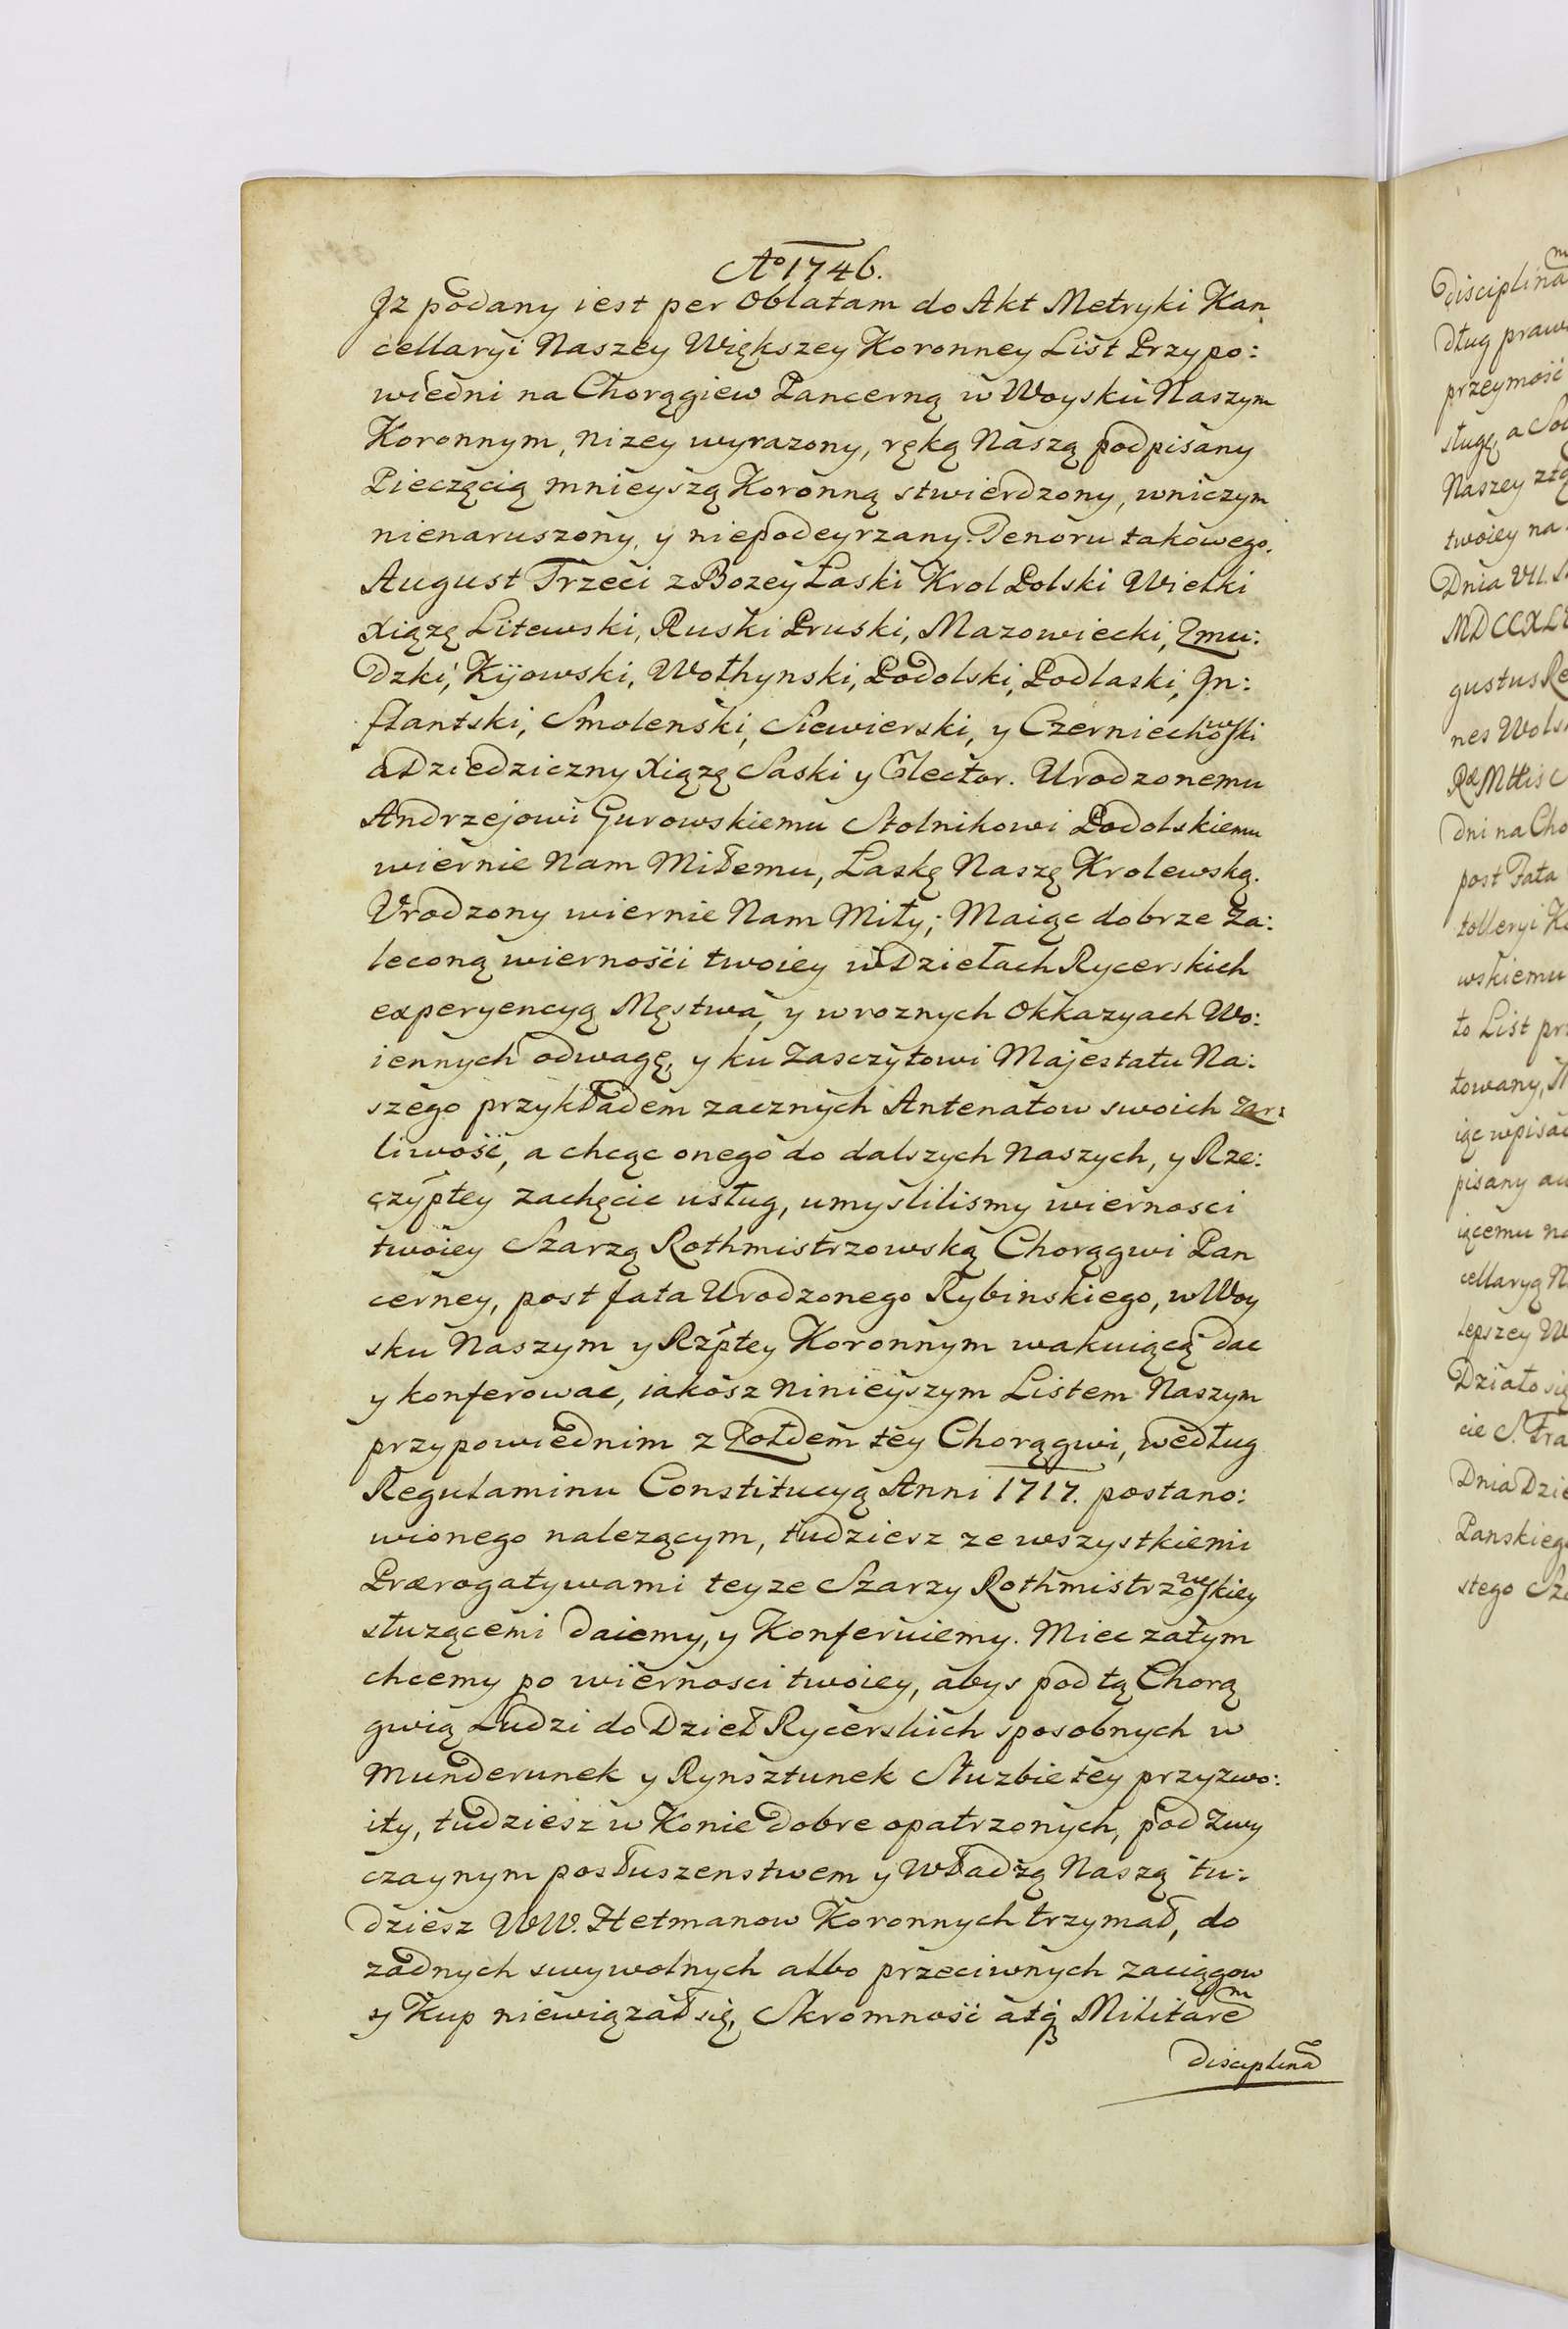 Aº 1746.
Jz podany iest per Oblatam do Akt Metryki Kan
cellaryi Naszey Większey Koronney List Przypo:
wiedni na Chorągiew Pancerną w Woysku Naszym
Koronnym, nizey wyrazony, ręką Naszą podpisany
Pieczęcią mnieyszą Koronną stwierdzony, wniczym
nienaruszony, y niepodeyrzany. Tenoru takowego.
August Trzeci z Bozey Łaski Krol Polski Wielki
Xiąze Litewski, Ruski Pruski, Mazowiecki, Zmu:
dzki, Kijowski, Wołhynski, Podolski, Podlaski, Jn:
flantski, Smolenski, Siewierski, y Czerniechowski
a Dziedziczny Xiąze Saski y Elector. Urodzonemu
Andrzejowi Gurowskiemu Stolnikowi Podolskiemu
wiernie Nam Miłemu, Łaskę Naszę Krolewską.
Vrodzony wiernie Nam Miły; Maiąc dobrze Za:
leconą wiernośći twoiey w Dziełach Rycerskich
experyencyą Męstwa, y w roznych Okkazyach Wo:
iennych odwagę, y ku Zasczytowi Majestatu Na:
szego przykładem zacznych Antenatow swoich Zar:
liwość, a chcąc onego do dalszych Naszych, y Rze:
czyptey zachęcic usług, umyślilismy wiernosci
twoiey Szarzą Rothmistrzowską Chorągwi Pan
cerney, post fata Urodzonego Rybinskiego, w Woy
sku Naszym y Rzptey Koronnym wakuiącą dac
y konferowac, iakosz Ninieyszym Listem Naszym
przypowiednim z Zołdem tey Chorągwi, według
Regulaminu Constitucyą Anni 1717. postano:
wionego nalezącym, tudziesz ze wszystkiemi
Prærogatywami teyze Szarzy Rothmistrzowskiey
słuzącemi daiemy, y Konferuiemy. Miec zatym
chcemy po wiernosci twoiey, abys pod tą Chorą
gwią Ludzi do Dzieł Rycerskich sposobnych w
Munderunek y Rynsztunek Słuzbie tey przyzwo:
ity, tudziesz w Konie dobre opatrzonych, pod Zwy
czaynym posłuszenstwem y Władzą Naszą tu:
dziesz WW. Hetmanow Koronnych trzymał, do
zadnych swywolnych albo przeciwnych zaciągow
y Kup niewiązał się, Skromność atq Militarem
disciplinã